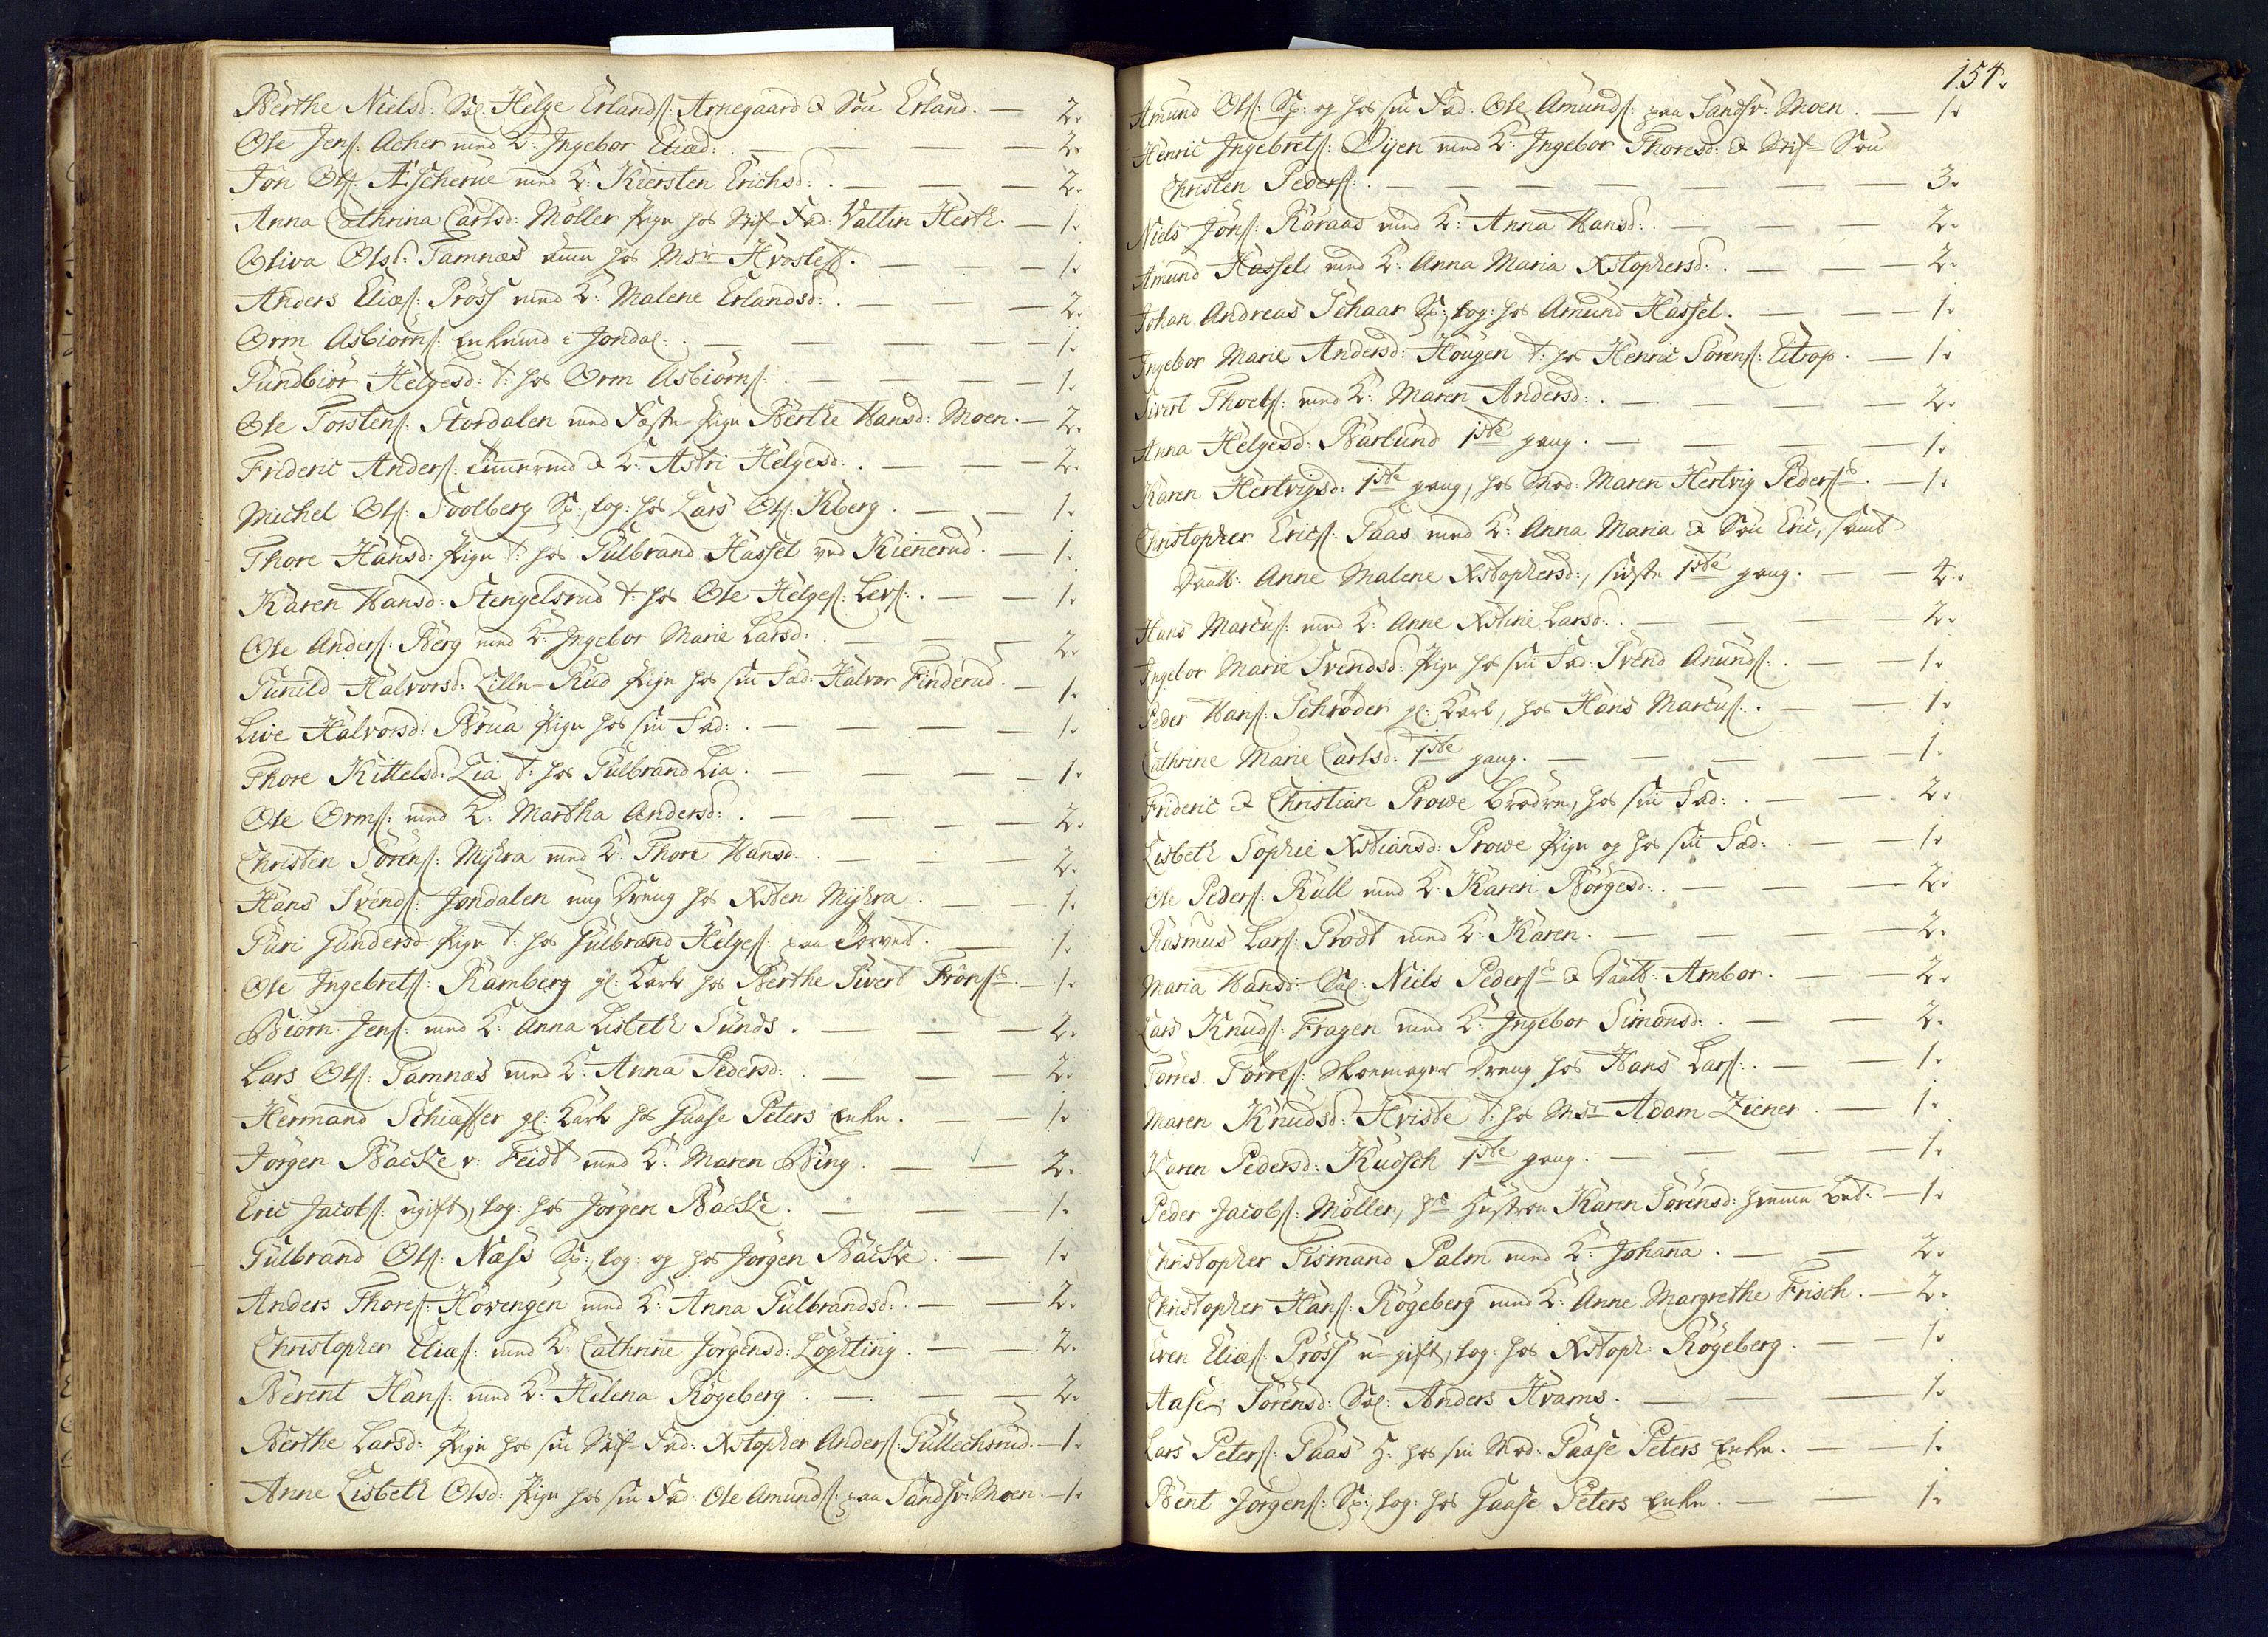 Berthe Nielsd: Sal: Helge Erlands: Arnegaard & Søn Erland. — 2.
Ole Jens: Acher med K: Ingebor Eliæd: — 2.
Jon Ols: Æscherue med K: Kiersten Erichsd: — 2.
Anna Cathrina Carlsd: Møller Pige hos Stif-Fad: Valtin Herth. — 1.
Oliva Olsd: Samnæs hos Msr Hvoslef. — 1.
Anders Elias: Pröss med K: Malene Erlandsd: — 2.
Orm Asbiørns: Enkemd i Jondal: — 1.
Gundbiør Helgesd: t: hos Orm Asbiørns: — 1.
Ole Torstens: Stordalen med Fæste Pige Berthe Hansd: Moen. — 2.
Frideric Anders: & K: Astri Helgesd: — 2.
Michel Ols: Soolberg Sp:, log: hos Lars Ols: Kberg. — 1.
Thore Hansd: Pige t: hos Gulbrand Hassel ved Kiennerud. — 1.
Karen Hansd: Stengelsrud t: hos Ole Helges: Lers: — 1.
Ole Anders: Berg med K: Ingebor Marie Larsd: — 2.
Gunild Halvorsd: Lille-Rud Pige hos sin Fad: Halvor Finderud. — 1.
Live Halvorsd: Brua Pige hos sin Fad: — 1.
Thore Kittelsd: Lia t: hos Gulbrand Lia. — 1.
Ole Orms: med K: Martha Andersd: — 2.
Christen Sørens: Myhra med K: Thore Hansd. — 2.
Hans Svends: Jondalen ung Dreng hos Xsten Myhra. — 1.
Guri Gundersd: Pige t: hos Gulbrand Helges: paa Torvet. — 1.
Ole Ingebrets: Ramberg gl: Karl hos Berthe Sivert — 1.
Biørn Jens: med K: Anna Lisbeth Sunds. — 2.
Lars Ols: Samnæs med K: Anna Pedersd: — 2.
Hermand Schiæffer gl: Karl hos Gaase Peters Enke. — 1.
Jørgen Backe v: Feidt med K: Maren Bing. — 2.
Eric Jacobs: ugift, log: hos Jørgen Backe. — 1.
Gulbrand Ols: Næss Sp:, log: og hos Jørgen Backe. — 1.
Anders Thores: Hovengen med K: Anna Gulbrandsd: — 2.
Christopher Elias: med K: Cathrine Jørgensd: Løgtting. — 2.
Berent Hans: med K: Helena Røgeberg. — 2.
Berthe Larsd: Pige hos sin Stif-Fad: Xstopher Anders: Gullechsrud. — 1.
Anne Lisbeth Olsd: Pige hos sin Fad: Ole Amunds: paa Sandsv: Moen. — 1.
154.
Amund Ols: Sp: og hos sin Fad: Ole Amunds: paa Sandsv: Moen. — 1.
Henric Ingebrets: Øyen med K: Ingebor Thoresd: & Stif-Søn
Christen Peders: — 3.
Niels Jons: Koraas med K: Anna Hansd: — 2.
Amund Hassel med K: Anna Maria Xstophersd: — 2.
Johan Andreas Schaar Sp:, log: hos Amund Hassel. — 1.
Ingebor Marie Andersd: Hougen t: hos Henric Sørens: Eitrop. — 1.
Sivert Thoels: med K: Maren Andersd: — 2.
Anna Helgesd: Barlund 1ste gang. — 1.
Karen Hertvigsd: 1ste gang, hos Mod: Maren Hertvig Peders. — 1.
Christopher Erics: Gaas med K: Anna Maria & Søn Eric, samt
Daatt: Anne Malene Xstophersd:, sidste 1ste gang. — 4.
Hans Marcus: med K: Anne Xstine Larsd: — 2.
Ingebor Marie Svendsd: Pige hos sin Fad: Svend Anunds: — 1.
Peder Hans: Schrøder gl: Karl, hos Hans Marcus: — 1.
Cathrine Marie Carlsd: 1ste gang. — 1.
Frideric & Christian Prowe Brødre, hos sin Fad: — 2.
Lisbeth Sophie Xstiansd: Prowe Pige og hos sin Fad: — 1.
Ole Peders: Kull med K: Karen Børgesd: — 2.
Rasmus Lars: Brodt med K: Karen. — 2.
Maria Hansd: Sal: Niels Peders & Daatt: Ambor. — 2.
Lars Knuds: Fragen med K: Ingebor Simonsd: — 2.
Torres Torres: Skoemager Dreng hos Hans Lars: — 1.
Maren Knudsd: Hviste t: hos Msr Adam Ziener. — 1.
Karen Pedersd: Kudsch 1ste gang. — 1.
Peder Jacobs: Møller, hs Hustroe Karen Sørensd: hiemme — 1.
Christopher Sismand Palm med K: Johanna. — 2.
Christopher Hans: Røgeberg med K: Anne Margrethe Frisch. — 2.
Even Elias: Pröss u-gift, log: hos Xstoph: Røgeberg. — 1.
Aase Sørensd: Sal: Anders Hvams. — 1.
Lars Peters: Gaas H: hos sin Mod: Gaase Peters Enke. — 1.
Bent Jørgens: Sp:, log: hos Gaase Peters Enke. — 1.